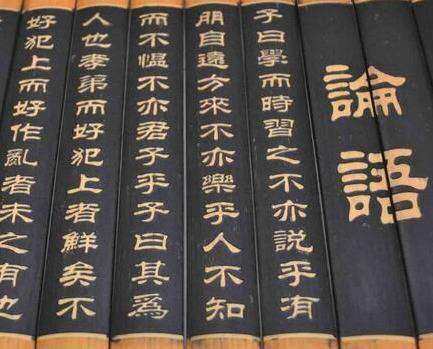 論語
子曰學而時習之不亦說乎有
朋自遠方來不亦樂乎人不知
而不慍不亦君子乎子曰其為
人也孝弟而好犯上者鮮矣不
好犯上而好作亂者未之有也